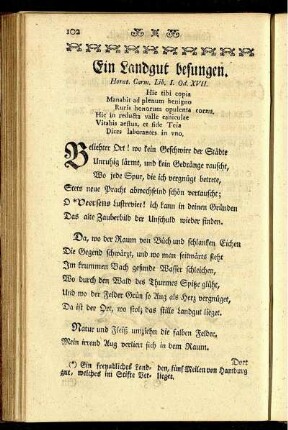 102
Ein Landgut besungen.
Horat. Carm. Lib. I. Od. XVII.
Hic tibi copia
Manabit ad plenum benigno
Ruris honorum opulenta cornu,
Hic in reducta valle caniculae
Vitabis aestus, et fide Teia
Dices laborantes in uno,
Beliebter Ort! wo kein Geschwirre der Städte
Unruhig lärmt, und kein Gedränge rauscht,
Wo jede Spur, die ich vergnügt betrete,
Stets neue Pracht abwechselnd schön vertauscht;
O Lustrevier! ich kann in deinen Gründen
Das alte Zauberbild der Unschuld wieder finden.
Da, wo der Raum von Büch und schlanken Eichen
Die Gegend schwärzt, und wo man seitwärts sieht
Im krummen Bach gesunde Wasser schleichen,
Wo durch den Wald des Thurmes Spitze glüht,
Und wo der Felder Grün so Aug als Herz vergnüget,
Da ist der Ort, wo stolz das stille Landgut lieget.
Natur und Fleiß umziehn die falben Felder,
Mein irrend Aug verliert sich in dem Raum.
Dort
(*) Ein freundliches Land- den, fünf Meilen von Hamburg
gut, welches im Stifte Ver- lieget.